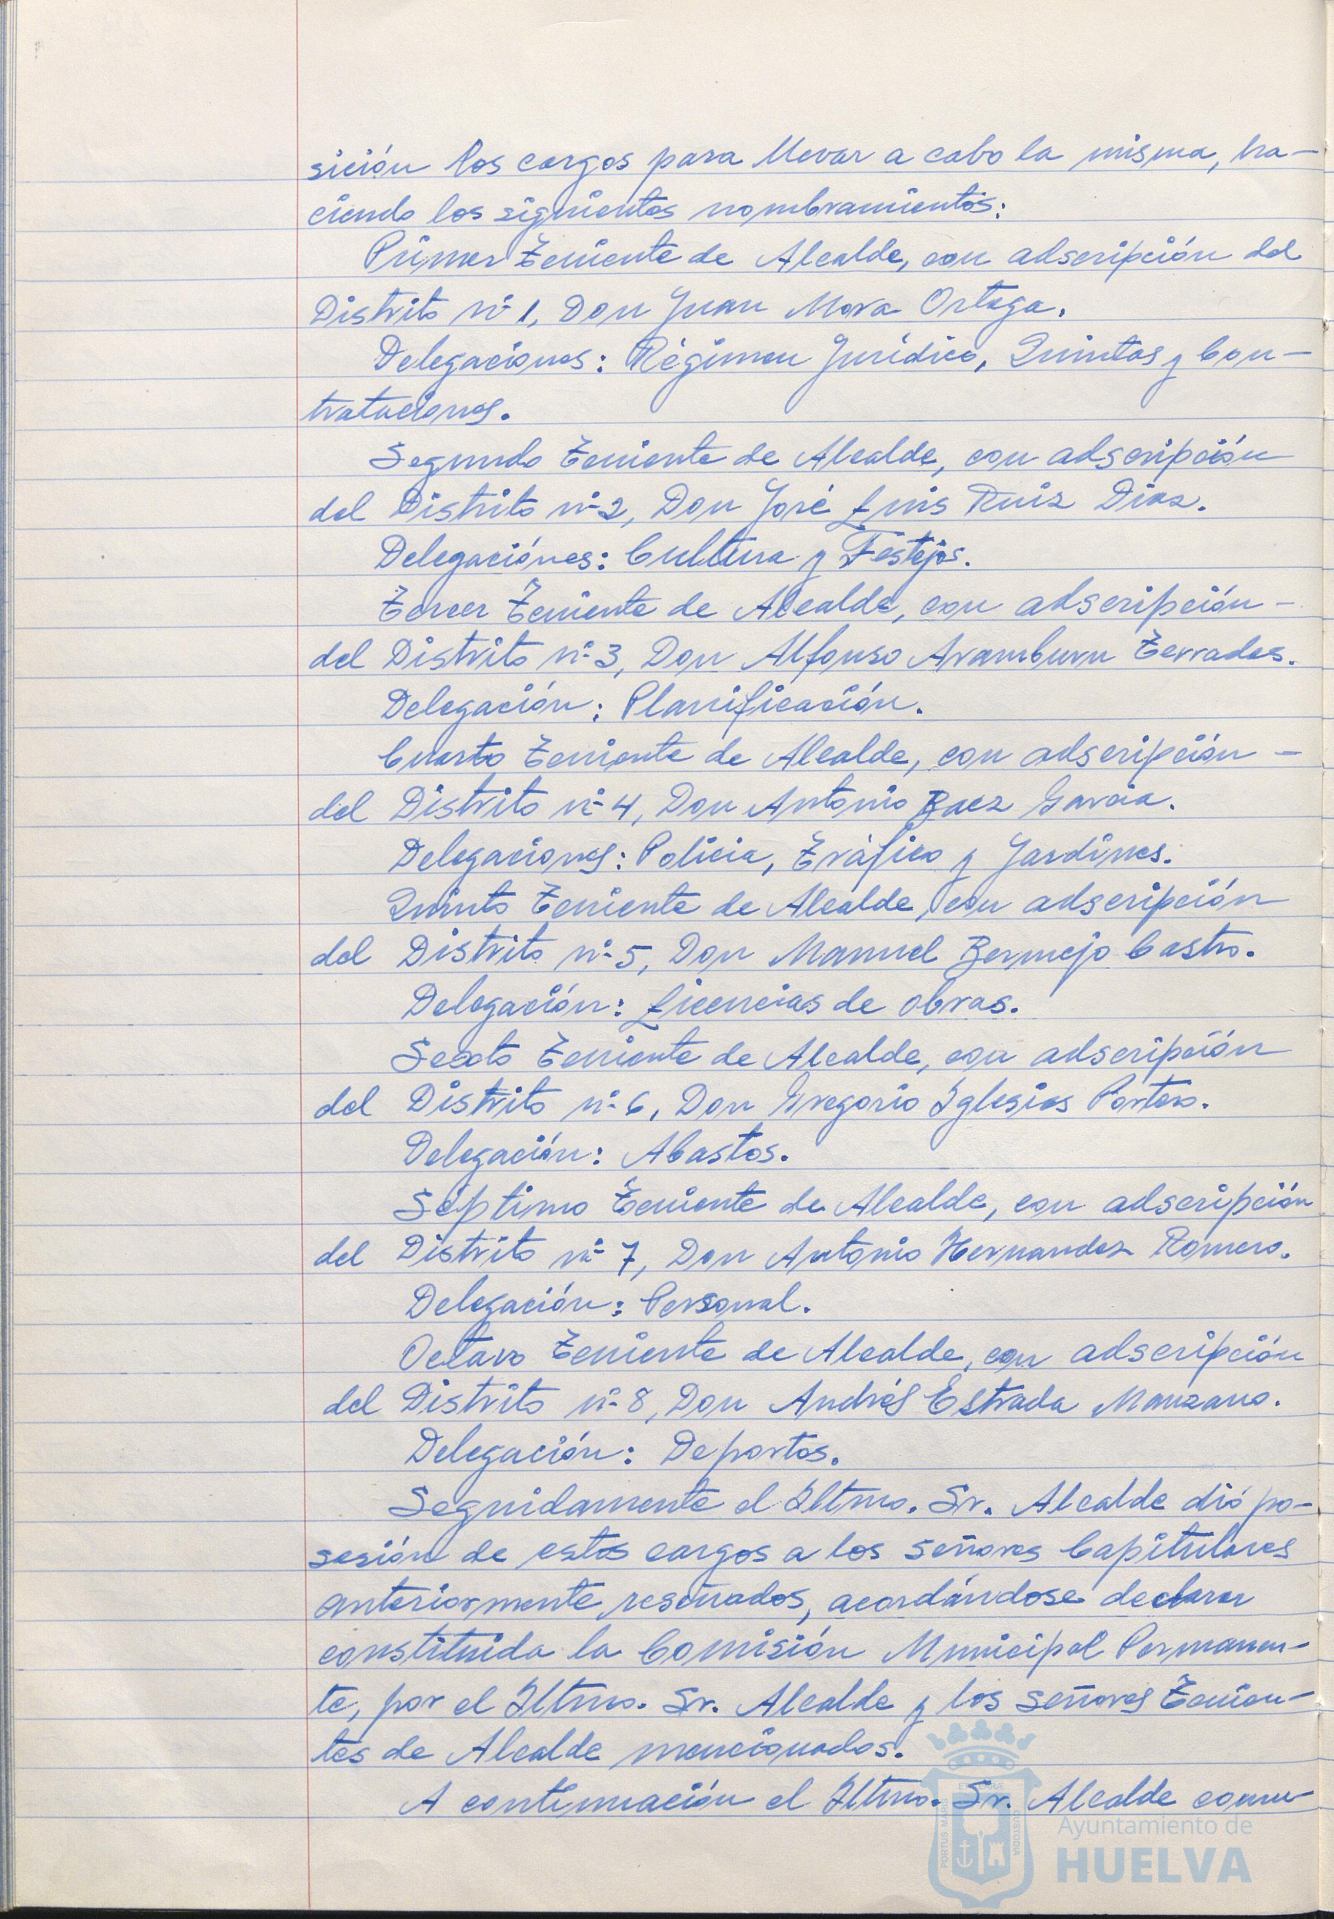 sición los cargos para llevar a cabo la misma, ha-
ciendo los siguientes nombramientos:
Primer Teniente de Alcalde, con adscripción del
Distrito nº 1, Don Juan Mora Ortega.
Delegaciones: Régimen Jurídico, Quintas y Con-
trataciones.
Segundo Teniente de Alcalde, con adscripción
del Distrito nº 2, Don José Luis Ruiz Diaz.
Delegaciónes: Cultura y Festejos.
Tercer Teniente de Alcalde, con adscripción -
del Distrito nº 3, Don Alfonso Aramburu Terrades.
Delegación: Planificación.
Cuarto Teniente de Alcalde, con adscripción -
del Distrito nº 4, Don Antonio Baez Garcia.
Delegaciones: Policia, Tráfico y Jardines.
Quinto Teniente de Alcalde, con adscripción
del Distrito nº 5, Don Manuel Bermejo Castro.
Delegación: Licencias de obras.
Sexto Teniente de Alcalde, con adscripción
del Distrito nº 6, Don Gregorio Iglesias Portero.
Delegación: Abastos.
Séptimo Teniente de Alcalde, con adscripción
del Distrito nº 7, Don Antonio Hernandez Romero.
Delegación: Personal.
Octavo Teniente de Alcalde, con adscripción
del Distrito nº 8, Don Andrés Estrada Manzano.
Delegación: Deportes.
Seguidamente el Iltmo. Sr. Alcalde dió po-
sesión de estos cargos a los señores Capitulares
anteriormente reseñados, acordándose declarar
constituida la Comisión Municipal Permanen-
te, por el Iltmo. Sr. Alcalde y los señores Tenien-
tes de Alcalde mencionados.
A continuación el Iltmo. Sr. Alcalde comu-
PORTUS MARIS ET TERRAE CUSTODIA
Ayuntamiento de
HUELVA